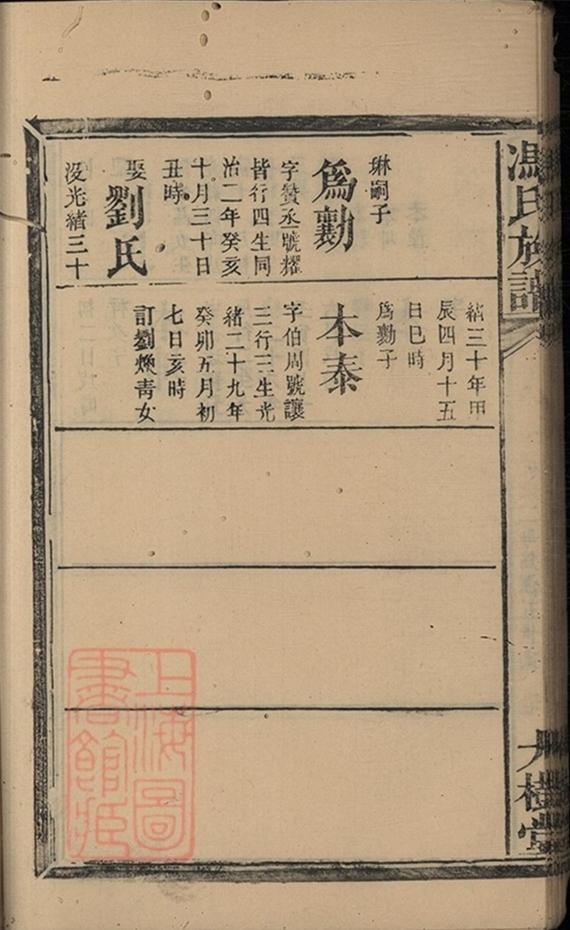 馮氏族譜
琳嗣子
為勷
字贊丞號燿
皆行四生同
治二年癸亥
十月三十日
丑時
娶劉氏
沒光緒三十
緒三十年甲
辰四月十五
日巳時
為勷子
本泰
字伯周號讓
三行三生光
緒二十九年
癸卯五月初
七日亥時
訂劉煥青女
大樹堂
上海圖
書館藏